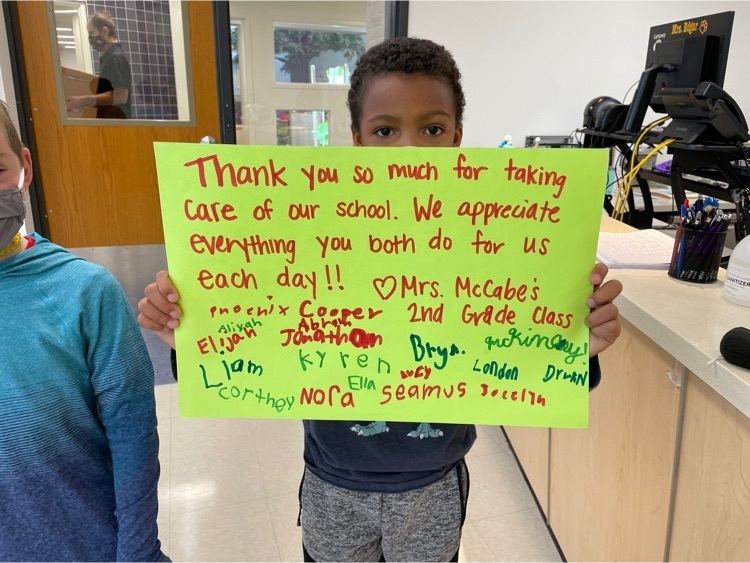 Thank you so much for taking
care of our school. We appreciate
everything you both do for us
each day!! ♡ Mrs. McCabe's
2nd Grade Class
Phoenix Cooper
Aliyah Abram
Elijah Jonathan
Liam Kyren Bryn. McKinley!
Ella Lucy London
Corthey Nora Seamus Jocelyn
Mrs. Edgar
Lenovo